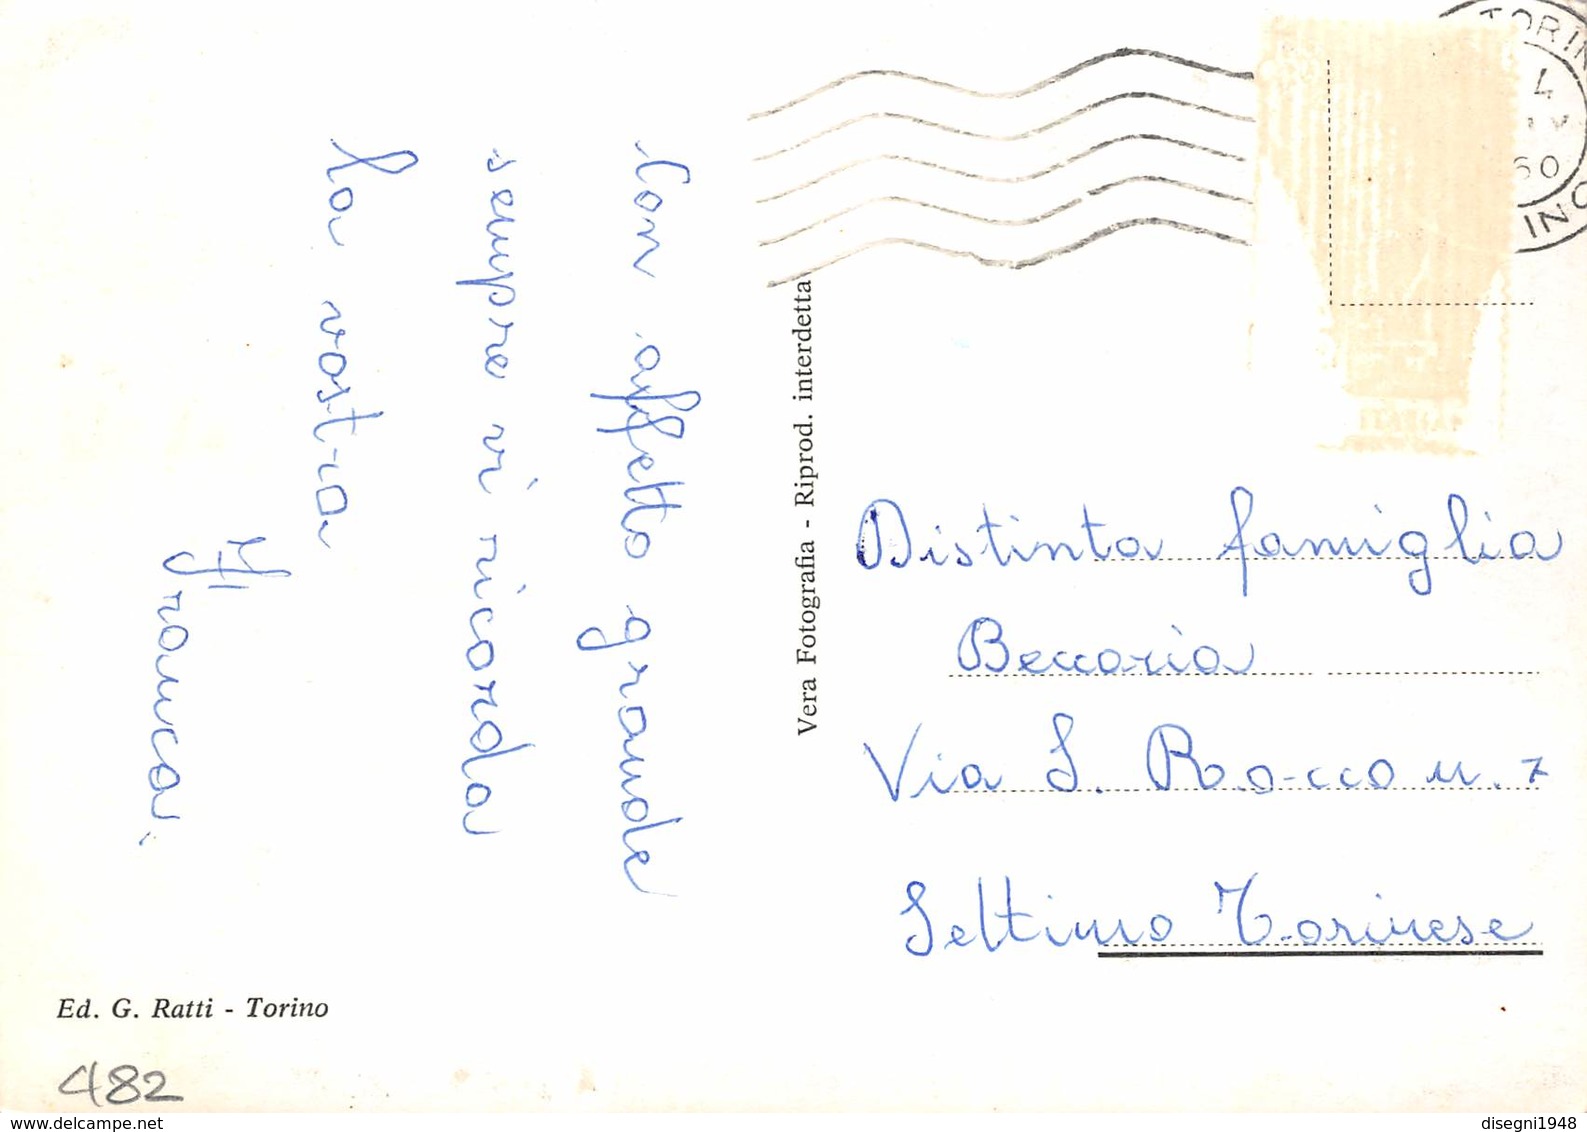 Con affetto grande
sempre vi ricorda
la vostra
Franca.
Vera Fotografia - Riprod. interdetta
TORIN
4
60
INO
Distinta famiglia
Beccaria
Via S. Rocco n. 7
Settimo Torinese
Ed. G. Ratti - Torino
482
www.delcampe.net
disegni1948